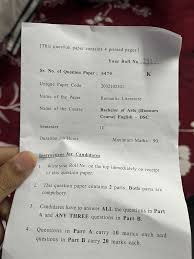 [This question paper contains 4 printed pages]
Your Roll No.
Sr. No. of Question Paper : 5479 K
Unique Paper Code
Name of the Paper : Romantic Literature
Name of the Course : Bachelor of Arts (Honours
Course) English - DSC
Semester
Duration : Hours Maximum Marks : 90
Instructions for Candidates
1. Write your Roll No. on the top immediately on receipt
of this question paper.
2. This question paper contains 2 parts. Both parts are
compulsory.
3. Candidates have to answer ALL the questions in Part
A and ANY THREE questions in Part B.
4. Questions in Part A carry 10 marks each and
questions in Part B carry 20 marks each.